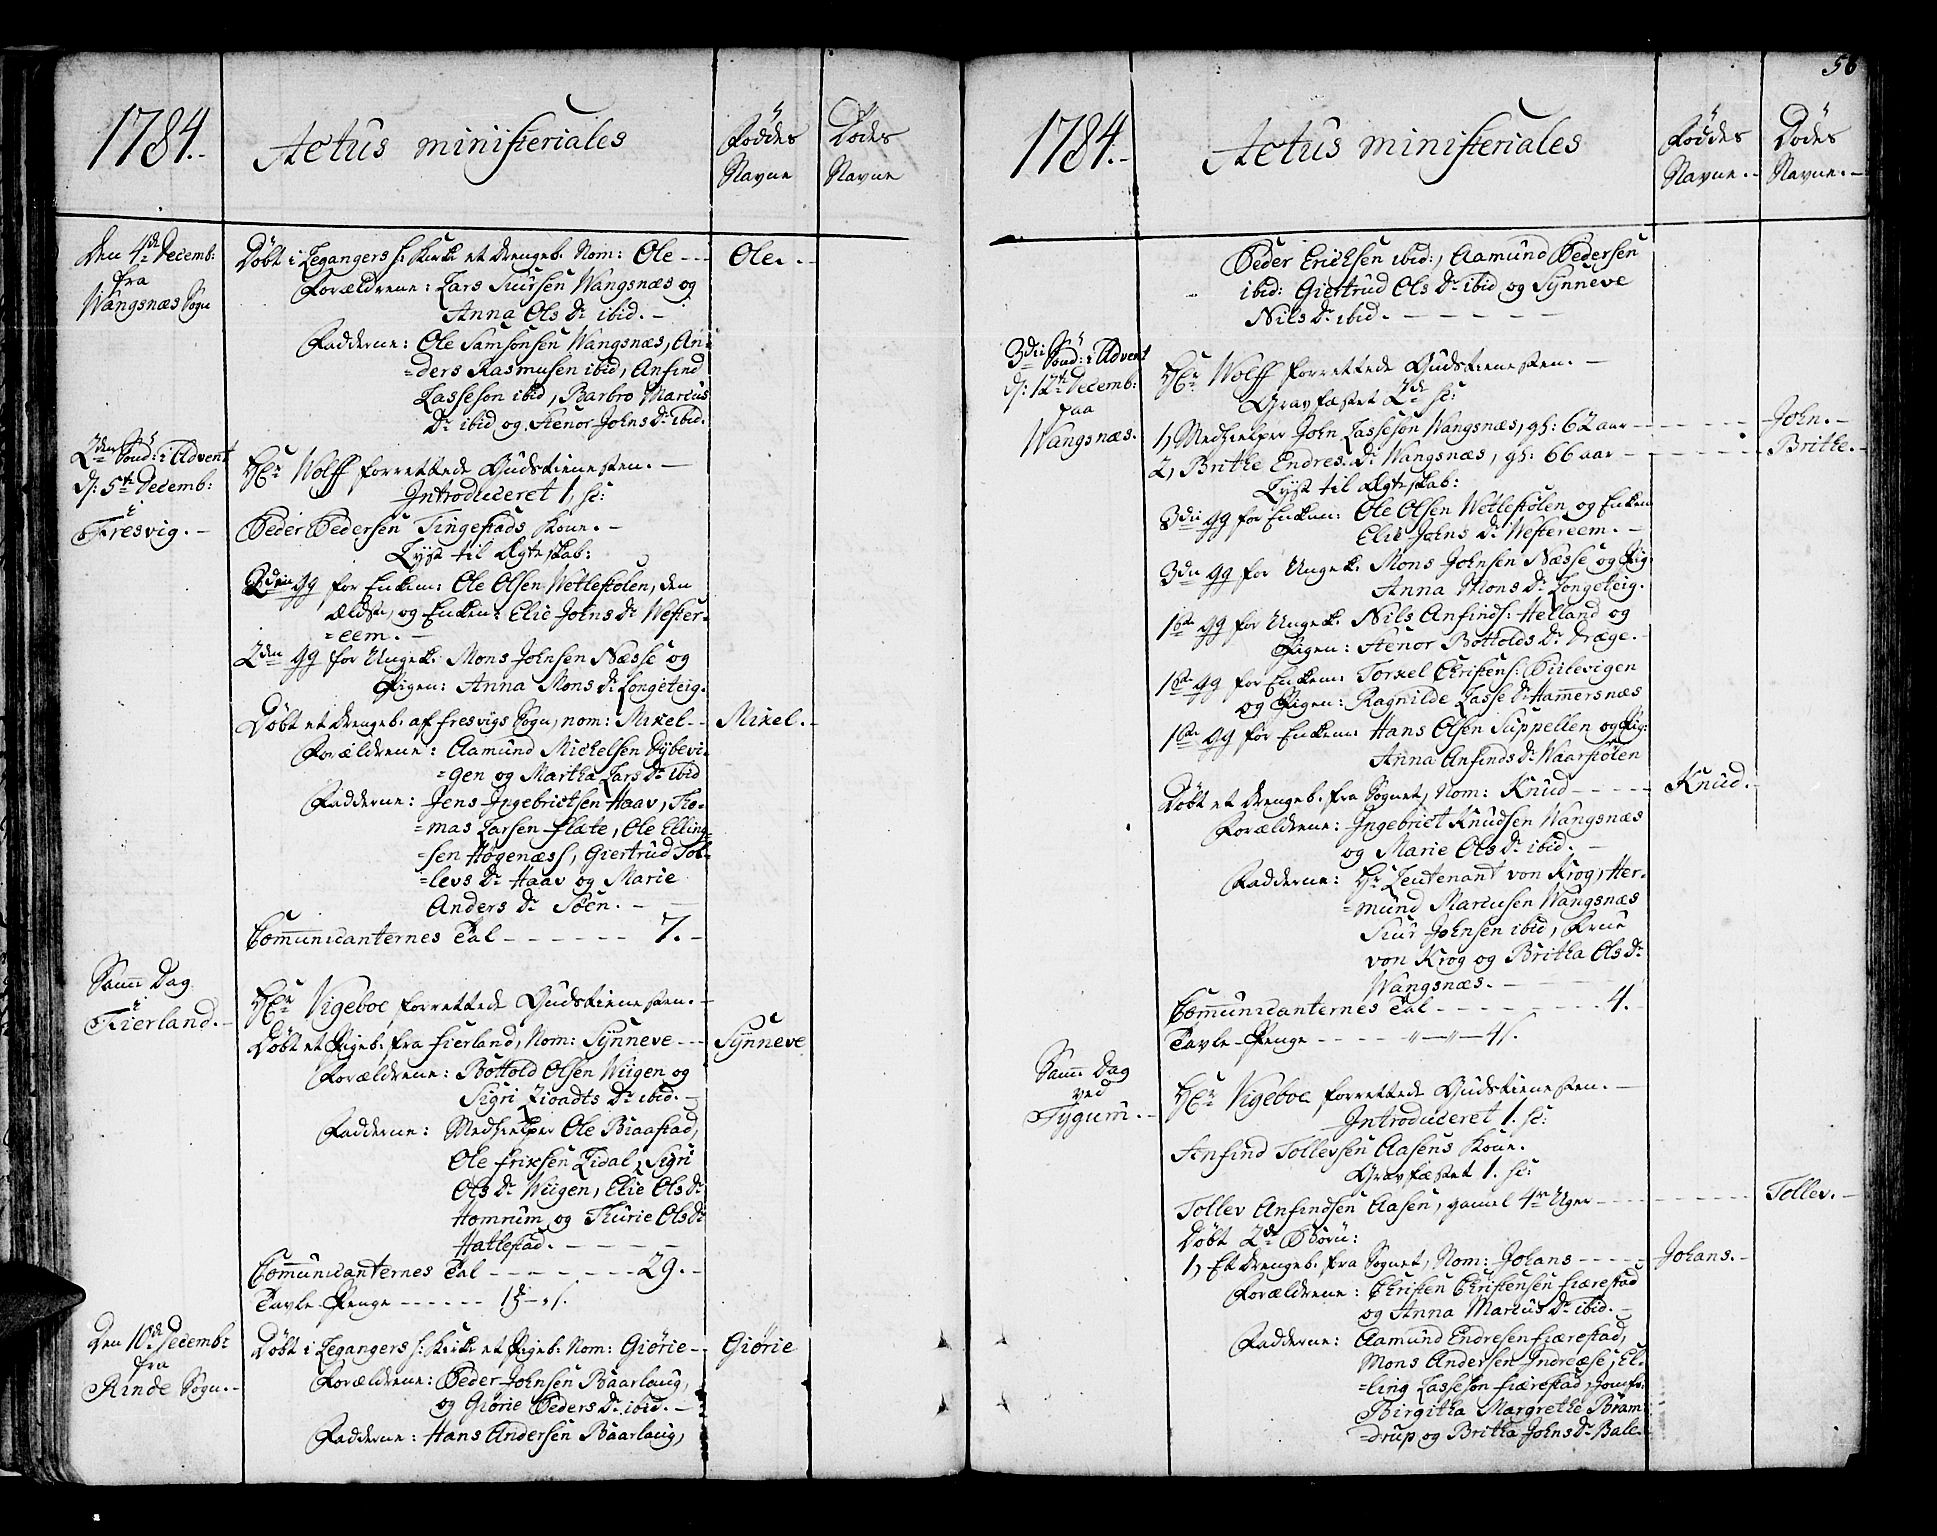 1784.-
Actus ministeriales
Føddes
Navne
Dødes
Navne
Den 4de Decemb:
fra
Wangsnæs Sogn
Døbt i Leganger h: Kirke et drengeb. Nom: Ole - - -
Ole. -
Forældrene: Lars Siursen Wangsnæs og
Anna Ols Dr ibid. -
Fadderne: Ole Samsonsen Wangsnæs, An-
=ders Rasmusen ibid, Anfind
Lasseson ibid, Barbro Marcus
Dr ibid og Stenor Johns Dr ibid.
2den Sönd: i Advent
d: 5te Decemb:
i
Fresvig. -
Hr Wolff forrettede Gudstienesten. -
Introduceret 1, st:
Peder Pedersen Tingestads Kone. -
Lyst til Ægteskab:
2den gg for Enkem: Ole Olsen Wetlestolen, den
ældste, og Enken: Elie Johns Dr Wester-
=eem. -
2den gg for Ungek. Mons Johnsen Næsse og
Pigen: Anna Mons Dr Longeteig.
Døbt et drengeb. af Fresvigs Sogn, nom: Mikel - -
Mikel. -
Forældrene: Aamund Michelsen Dybevi-
=gen og Martha Lars Dr ibid
Fadderne: Jens Ingebrictsen Haav, Tho-
=mas Larsen Flate, Ole Elling-
=sen Høgenæss, Giertrud Tol-
=levs Dr Haav og Marie
Anders Dr Söen. - -
Com̄unicanternes Tal - - - - - - 7. -
Sam̄ Dag
i
Fierland. -
Hr Vigeboe forrettede Gudstienesten. -
Døbt et Pigeb. fra Fierland, Nom: Synneve - - -
Synneve
Forældrene: Bottold Olsen Wiigen og
Sigri Lioadts Dr ibid. -
Fadderne: Medhielper Ole Biaastad,
Ole Eriksen Lidal, Sigri
Ols Dr Wiigen, Elie Ols Dr
Homrum og Thurie Ols Dr
Hatlestad. - - - - -
Com̄unicanternes Tal - - - - - - - 29. -
Tavle Penge - - - - - -
Den 10de Decemb:
fra
Rinde Sogn. -
Døbt i Leganger h: Kirke et Pigeb. Nom: Giørie - -
Giørie
Forældrene: Peder Johnsen Baarlaug,
og Giørie Peders Dr ibid. -
Fadderne: Hans Andersen Baarlaug,
56
1784. -
Actus ministeriales
Føddes
Navne. -
Dødes
Navne. -
Peder Ericksen ibid:, Aamund Pedersen
ibid: Giertrud Ols Dr ibid og Synneve
Nils Dr ibid. - - - - - -
3die Sönd: i Advent
d: 12te Decemb:
paa
Wangsnæs.
Hr Wolff forrettede Gudstienesten. -
Gravfæstet 2de st:
1, Medhielper John Lasseson Wangsnæs, gl: 62 aar - - - - - -
John. -
2, Brithe Endres Dr Wangsnæs, gl: 66 aar - - - - - -
Brithe. -
Lyst til Ægteskab:
3die gg for Enkem: Ole Olsen Wetlestölen og Enken
Elie Johns Dr Westereem. -
3die gg for Ungek. Mons Johnsen Næsse og Pig:
Anna Mons Dr Longeteig.
1ste gg for Ungek. Nils Anfinds: Helland og
Pigen: Stenor Bottolds Dr Dræge. -
1ste gg for Enkem: Torkel Christens: Diilevigen
og Pigen: Ragnilde Lasse Dr Ham̄ersnæs
1ste gg for Enkem: Hans Olsen Suppellen og Pig:
Anna Anfinds Dr Waarstölen
Døbt et drengeb. fra Sognet, Nom: Knud - - - - -
Knud. -
Forældrene: Ingebrict Knudsen Wangsnæs
og Marie Ols Dr ibid. -
Fadderne: Hr Leutenant von Krog, Her-
=mund Marcusen Wangsnæs
Siur Johnsen ibid, Frue
von Krog og Britha Ols Dr
Wangsnæs. - - - -
Com̄unicanternes Tal - - - - - - - - 4. -
Tavle Penge - - - - -
Sam̄ Dag
ved
Tygum. -
Hr Vigeboe forrettede Gudstienesten. -
Introduceret 1. st:
Anfind Tollevsen Aasens Kone. -
Gravfæstet 1. st:
Tollev Anfindsen Aasen, gamel 4re Uger - - - - - -
Tollev. -
Døbt 2de Börn:
1, Et drengeb. fra Sognet, Nom: Johans - - - - -
Johans. -
Forældrene: Christen Christensen Fiærestad
og Anna Marcus Dr ibid. -
Fadderne: Aamund Endresen Fiærestad,
Mons Andersen Indreæse, El-
=ling Lasseson Fiærestad, Jomfr.
Birgitha Margrethe Bram-
=drup og Britha Johns Dr Bale.